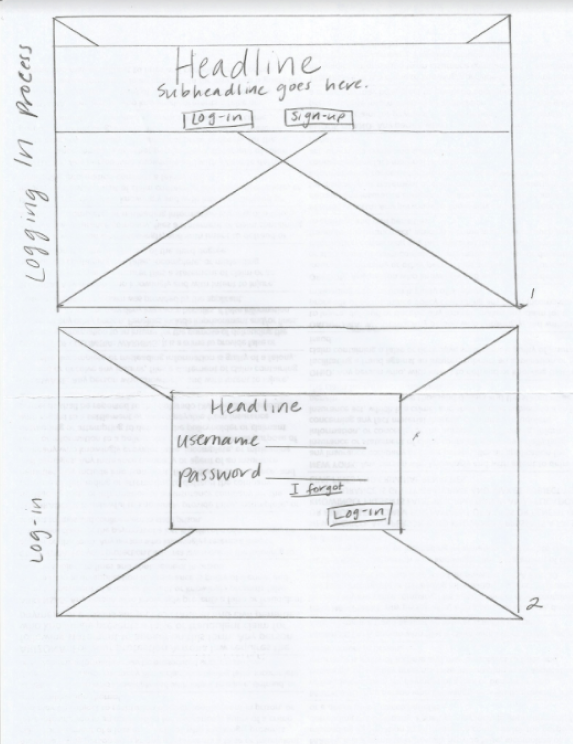 Logging In Process
Headline
Subheadline goes here.
Log-in Sign-up
1
Log-in
Headline
username
password
I forgot
Log-in
2